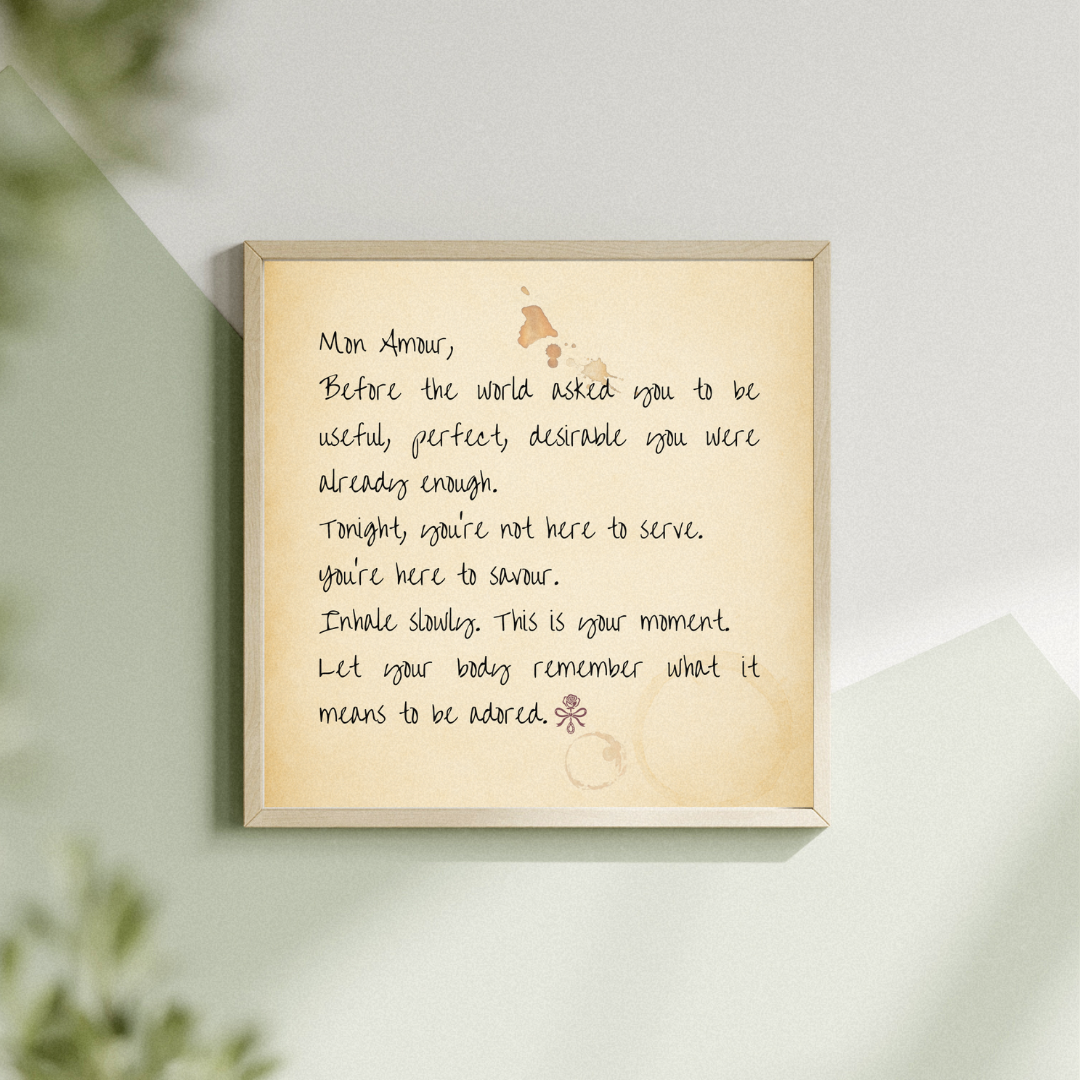 Mon Amour,
Before the world asked you to be
useful, perfect, desirable you were
already enough.
Tonight, you're not here to serve.
You're here to savour.
Inhale slowly. This is your moment.
Let your body remember what it
means to be adored.